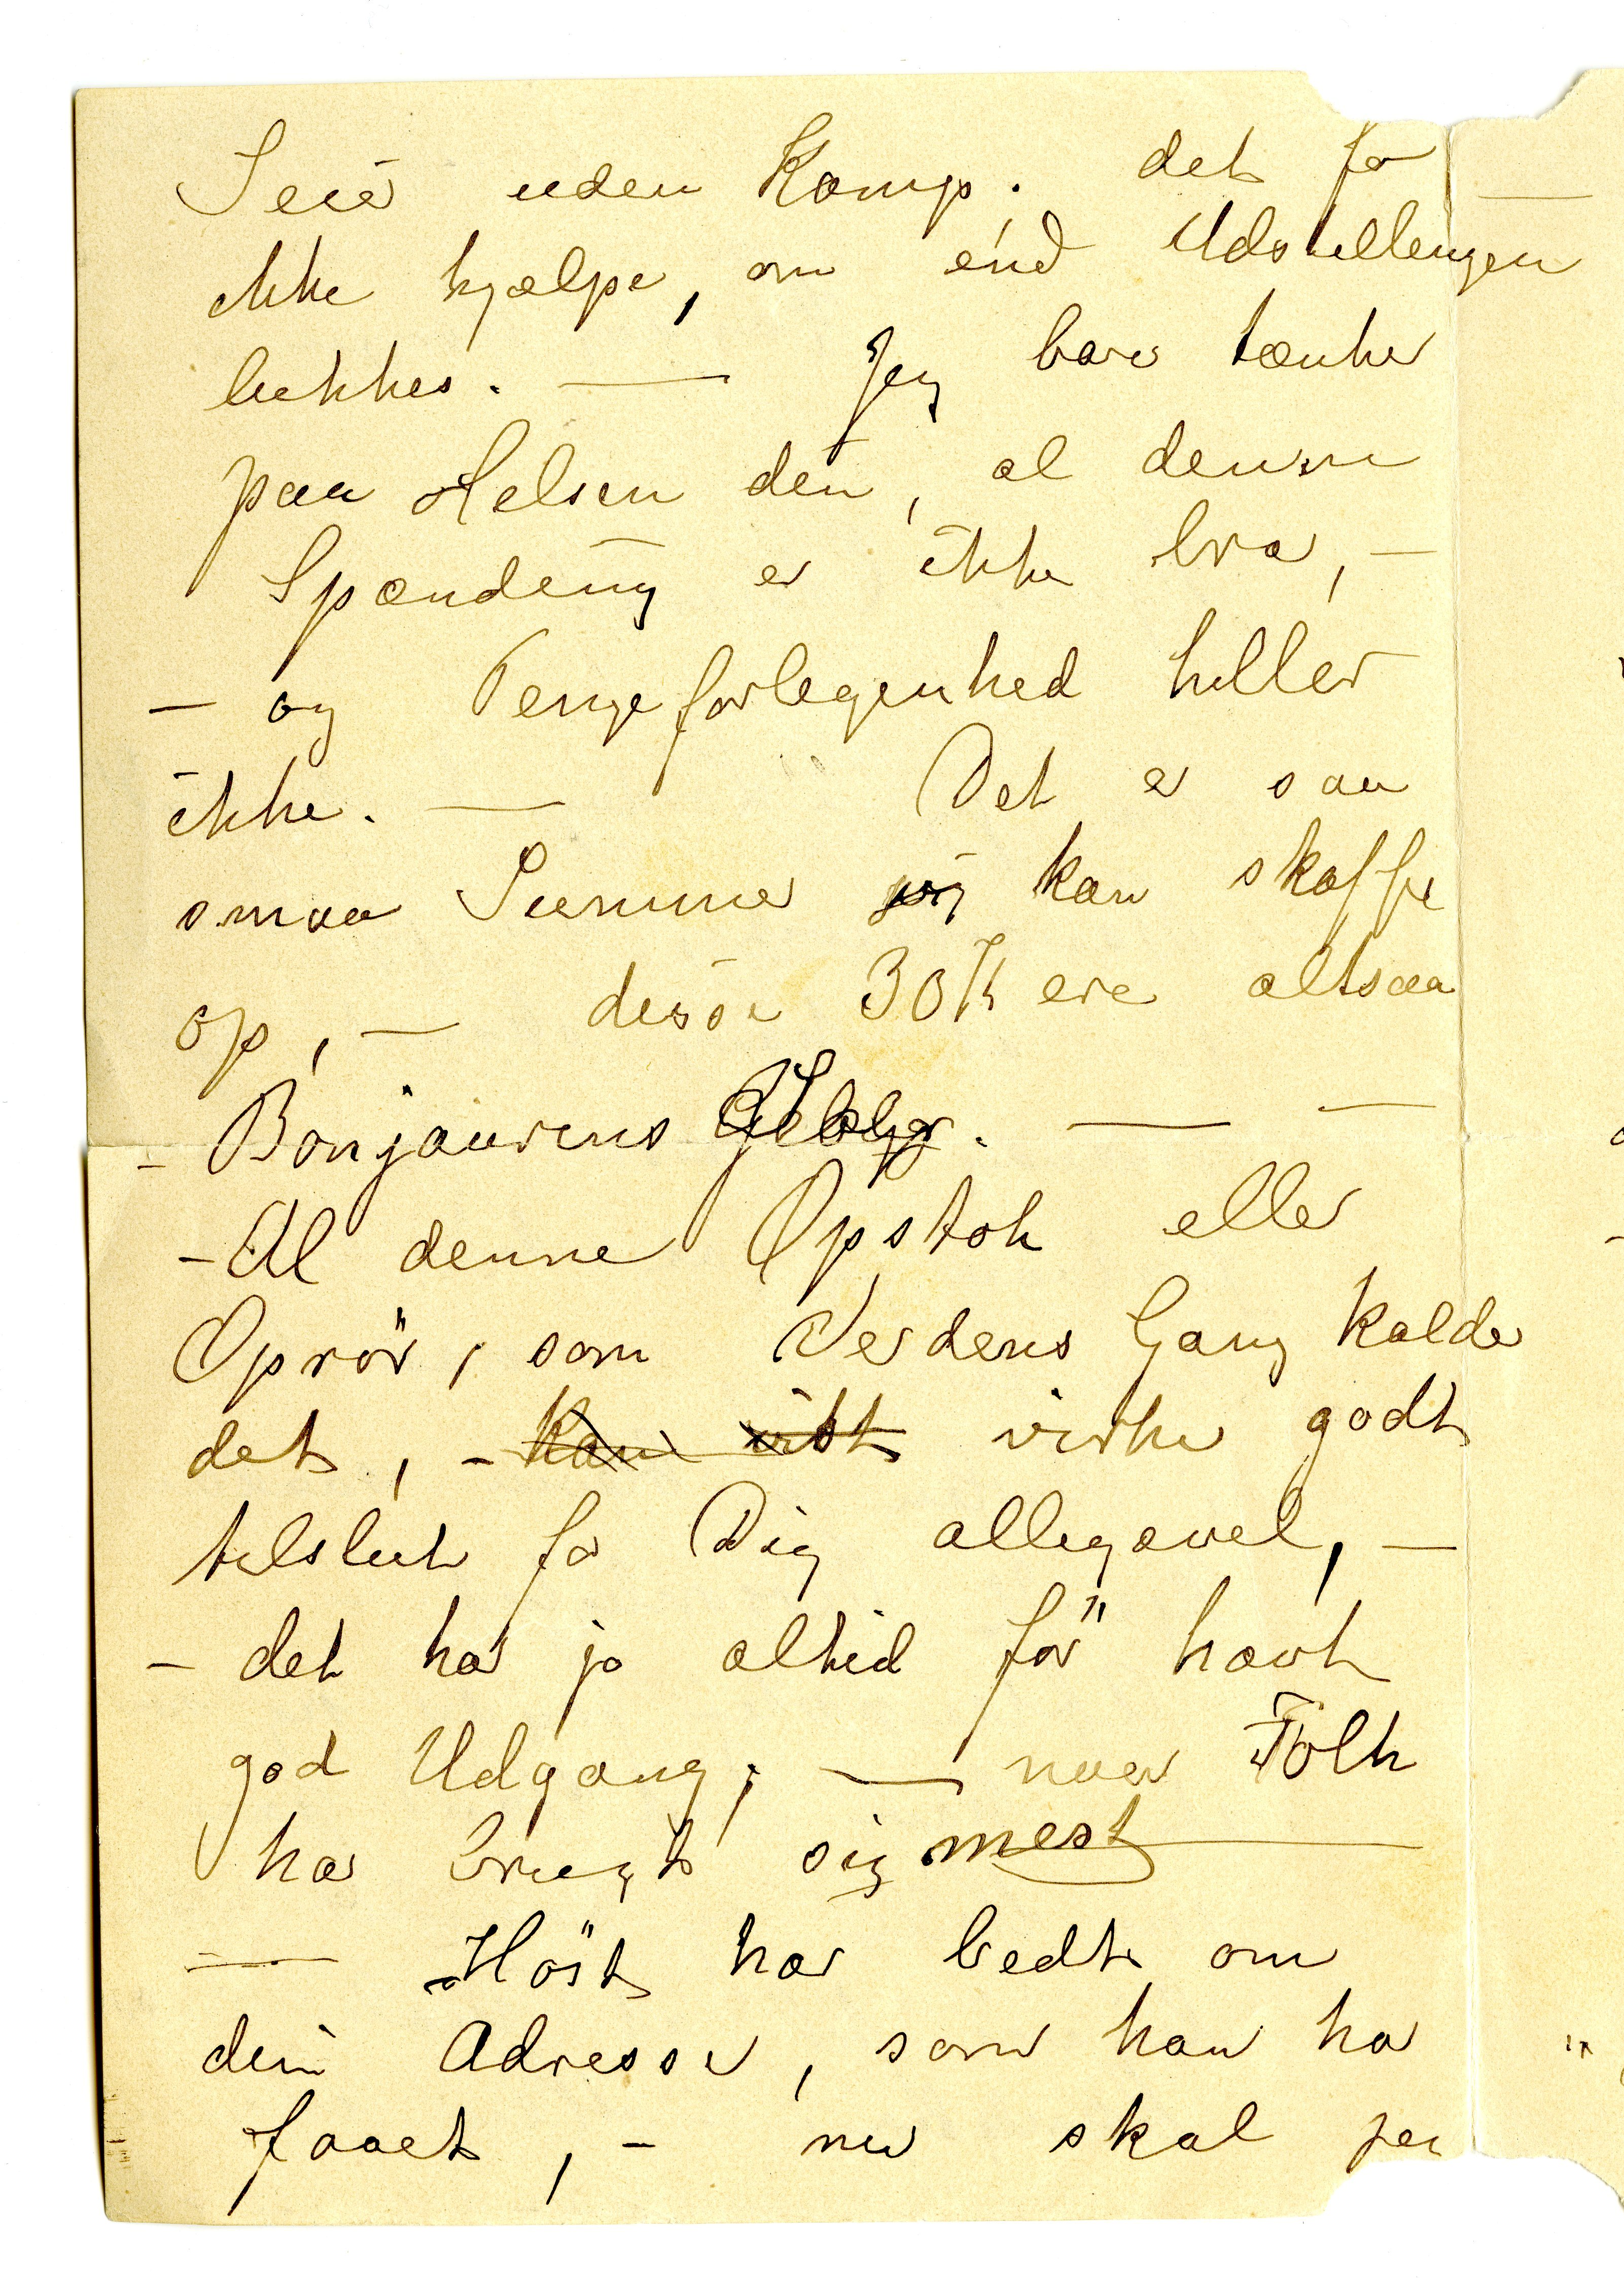 Seier uden Kamp. det faar —
ikke hjælpe, om end Udstillingen
lukkes. — Jeg bare tænker
paa Helsen din, al denne
Spænding er ikke bra, —
— og Pengeforlegenhed heller
ikke. — Det er saa
smaa Summer jeg kan skaffe
op, — disse 30 K ere altsaa
– Bonjourens. — —
– Al denne Opstok eller
Oprör, som Verdens Gang kalder
det, – kan vist virke godt
tilslut for Dig alligevel, —
– det har jo altid för havt
god Udgang, — naar Folk
har brugt sig mest —
— Höst har bedt om
din Adresse, som han har
faaet, – nu skal jeg